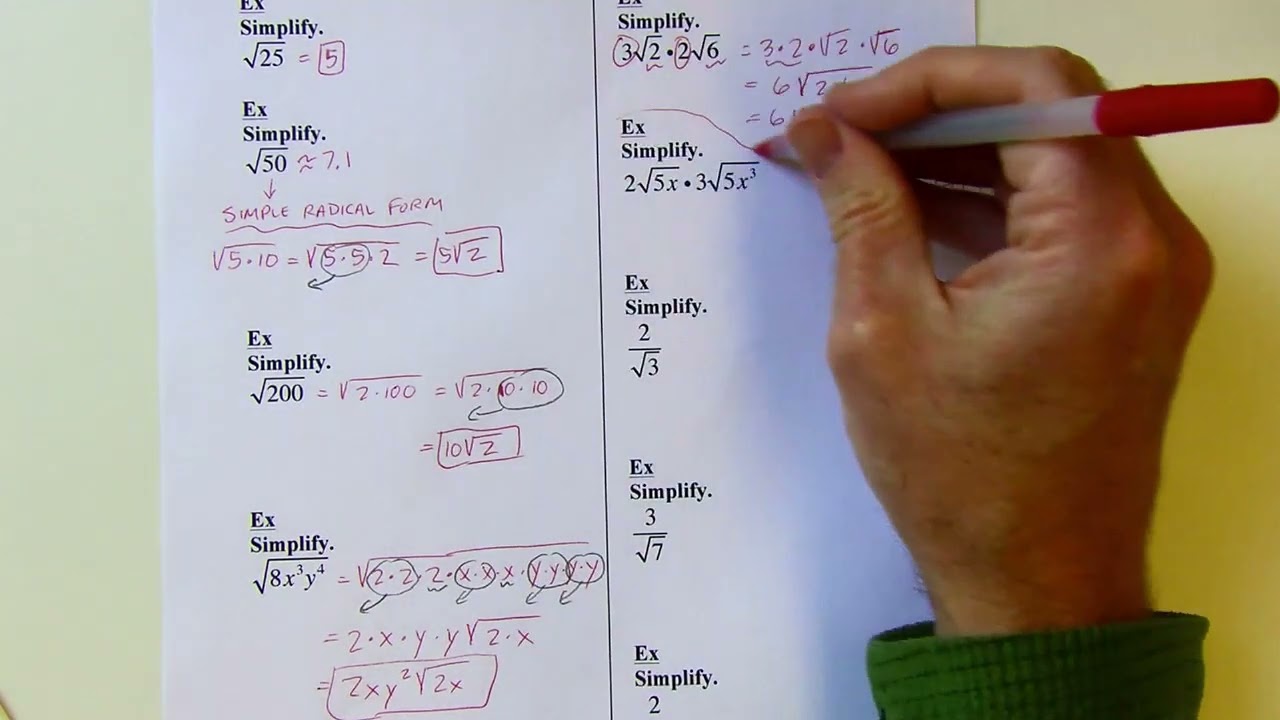 Ex
Simplify.
√25 = 5
Ex
Simplify.
√50 ≈ 7.1
SIMPLE RADICAL FORM
√5·10 = √5·5·2 = 5√2
Ex
Simplify.
√200 = √2·100 = √2·10·10
= 10√2
Ex
Simplify.
√8x³y⁴ = √2·2·2·x·x·x·y·y·y·y
= 2·x·y·y√2·x
= 2xy²√2x
Ex
Simplify.
3√2 • 2√6 = 3·2·√2·√6
= 6√2
= 6
Ex
Simplify.
2√5x • 3√5x³
Ex
Simplify.
2/√3
Ex
Simplify.
3/√7
Ex
Simplify.
2